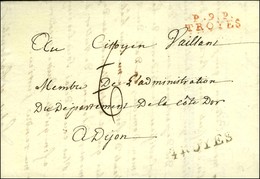 P. 9. P.
TROYES
Au Citoyen Vaillant
Membre De L'administration
Du Département De la Côte Dor
A Dijon
TROYES